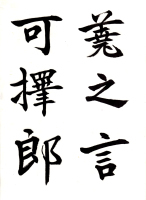 蕘之言
可擇郎